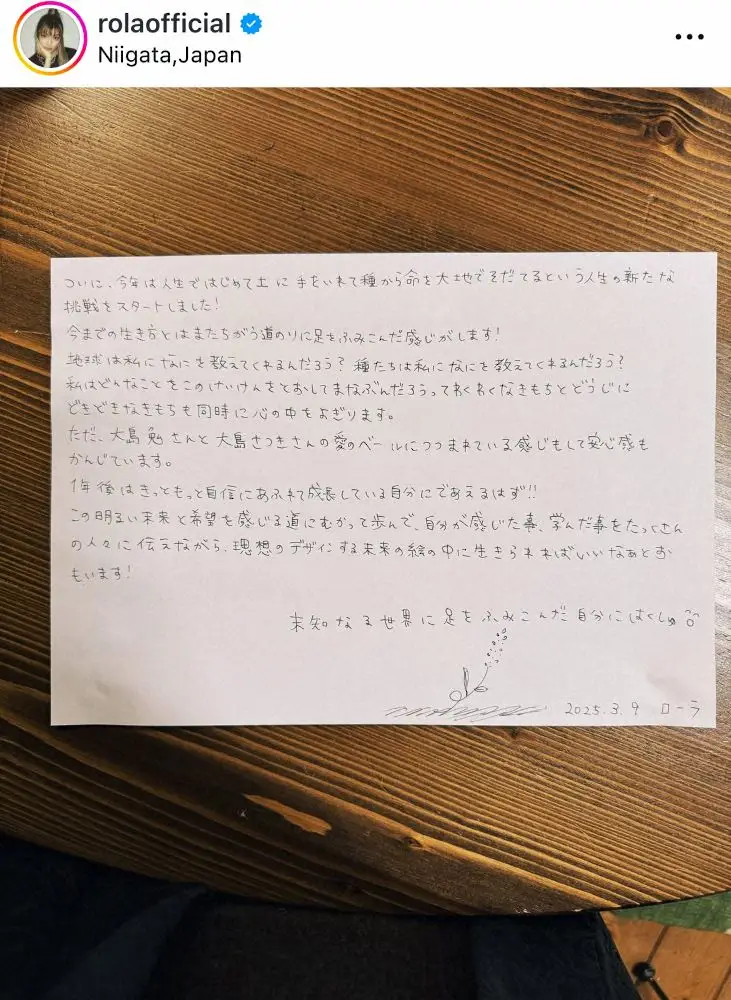 rolaofficial
Niigata,Japan
ついに、今年は人生ではじめて土に手をいれて種から命を大地でそだてるという人生の新たな
挑戦をスタートしました!
今までの生き方とはまたちがう道のりに足をふみこんだ感じがします!
地球は私になにを教えてくれるんだろう? 種たちは私になにを教えてくれるんだろう?
私はどんなことをこのけいけんをとおしてまなぶんだろうってわくわくなきもちとどうじに
どきどきなきもちも同時に心の中をよぎります。
ただ、大島勉さんと大島さつきさんの愛のベールにつつまれている感じもして安心感も
かんじています。
1年後はきっともっと自信にあふれて成長している自分にであえるはず!!
この明るい未来と希望を感じる道にむかって歩んで、自分が感じた事、学んだ事をたっくさん
の人々に伝えながら、理想のデザインする未来の絵の中に生きられればいいなぁとお
もいます!
未知なる世界に足をふみこんだ自分にはくしゅ
2025.3.9 ローラ